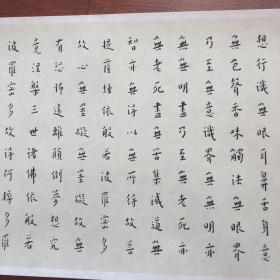 想行識無眼耳鼻舌身意
無色聲香味觸法無眼界
乃至無意識界無無明亦
無無明盡乃至無老死亦
無老死盡無苦集滅道無
智亦無得以無所得故菩
提薩埵依般若波羅蜜多
故心無罣礙無罣礙故無
有恐怖遠離顛倒夢想究
竟涅槃三世諸佛依般若
波羅蜜多故得阿耨多羅